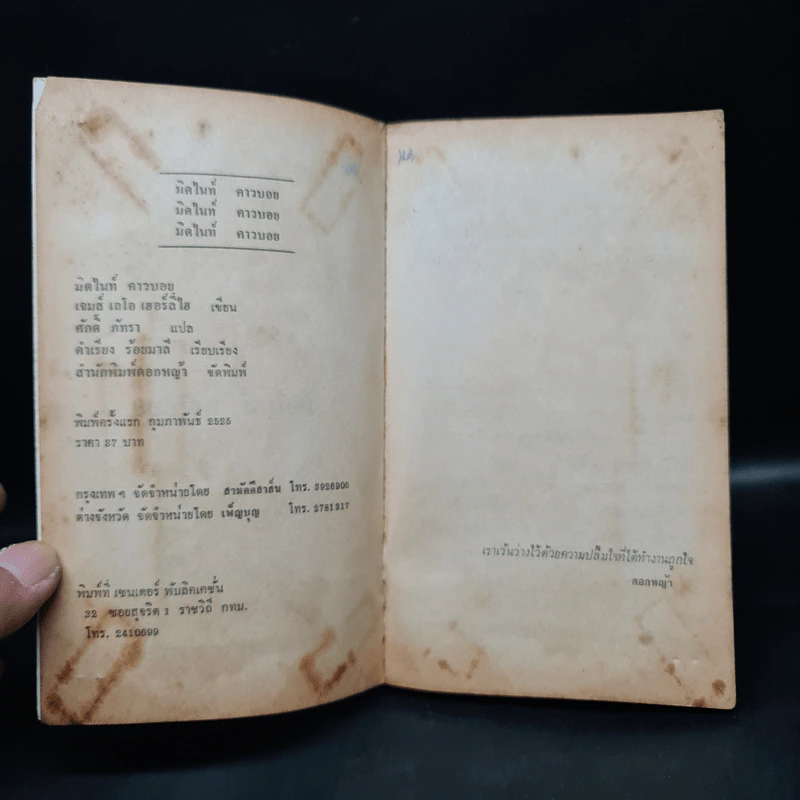 มิดไนท์ คาวบอย
มิดไนท์ คาวบอย
มิดไนท์ คาวบอย
มิดไนท์ คาวบอย
เจมส์ เลโอ เฮอร์ลีไฮ เขียน
ศักดิ์ ภัทรา แปล
คำเรียง ร้อยมาลี เรียบเรียง
สำนักพิมพ์ดอกหญ้า จัดพิมพ์
พิมพ์ครั้งแรก กุมภาพันธ์ 2525
ราคา 37 บาท
กรุงเทพ ฯ จัดจำหน่ายโดย สามัคคีสาส์น โทร. 3926906
ต่างจังหวัด จัดจำหน่ายโดย เพ็ญบุญ โทร. 2781317
พิมพ์ที่ เซนเตอร์ พับลิคเคชั่น
32 ซอยสุจริต 1 ราชวิถี กทม.
โทร. 2410699
เราเว้นว่างไว้ด้วยความปลื้มใจที่ได้ทำงานถูกใจ
ดอกหญ้า